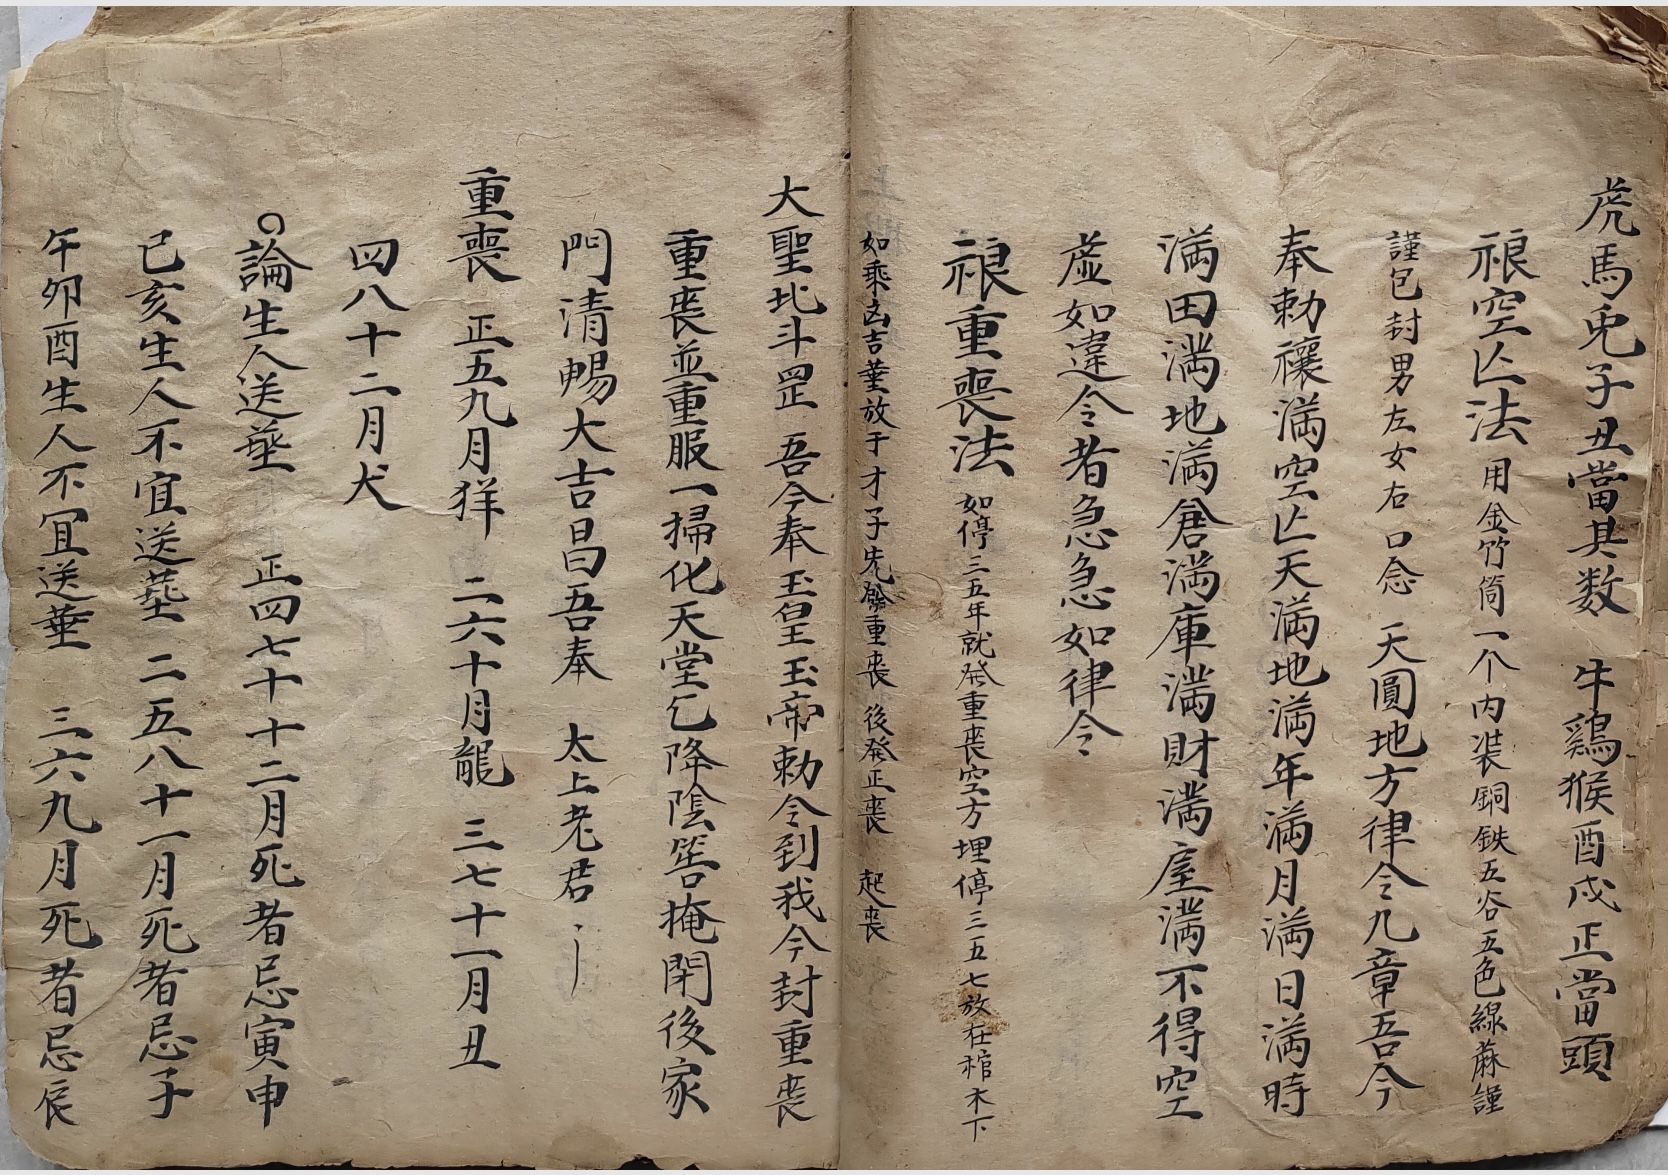 虎馬兎子丑當其数　牛鷄猴酉戍正當頭
䘙空亾法　用金竹筒一个内装銅鉄五谷五色線蔴謹
謹包封男左女右口念　天圓地方律令九章吾今
奉勅禳満空亾天満地満年満月満日満時
満田満地満倉満庫満財満屋満不得空
虚如違令者急急如律令
䘙重喪法　如停三五年就発重喪空方埋停三五七放在棺木下
如乘凶吉葬放于才子先發重喪　後発正喪　起喪
大聖北斗罡　吾今奉玉皇玉帝勅令到我今封重喪
重喪並重服一掃化天堂乞降陰筶掩閉後家
門清暢大吉昌吾奉　太上老君
重喪　正五九月猐　二六十月龍　三七十一月丑
四八十二月犬
○論生人送塟　正四七十十二月死者忌寅申
已亥生人不宜送塟　二五八十一月死者忌子
午卯酉生人不宜送葬　三六九月死者忌辰